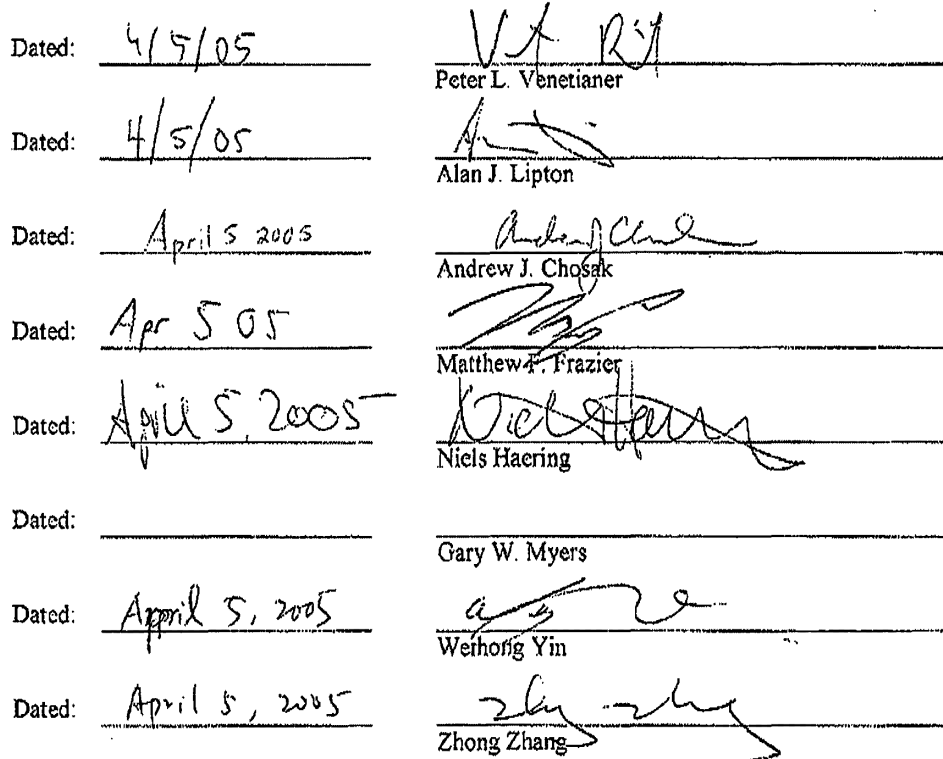 Dated: 4/5/05
Peter L. Venetianer
Dated: 4/5/05
Alan J. Lipton
Dated: April 5 2005
Andrew J. Chosak
Dated: Apr 5 05
Matthew F. Frazier
Dated: April 5, 2005
Niels Haering
Niels Haering
Dated:
Gary W. Myers
Dated: Appril 5, 2005
Weihong Yin
Dated: April 5, 2005
Zhong Zhang